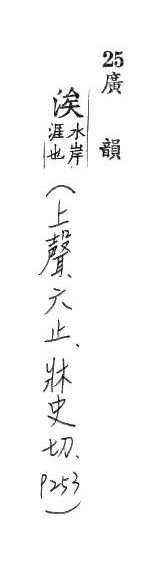 25廣韻
涘水岸涯也(上聲、六止、牀史切、P253)